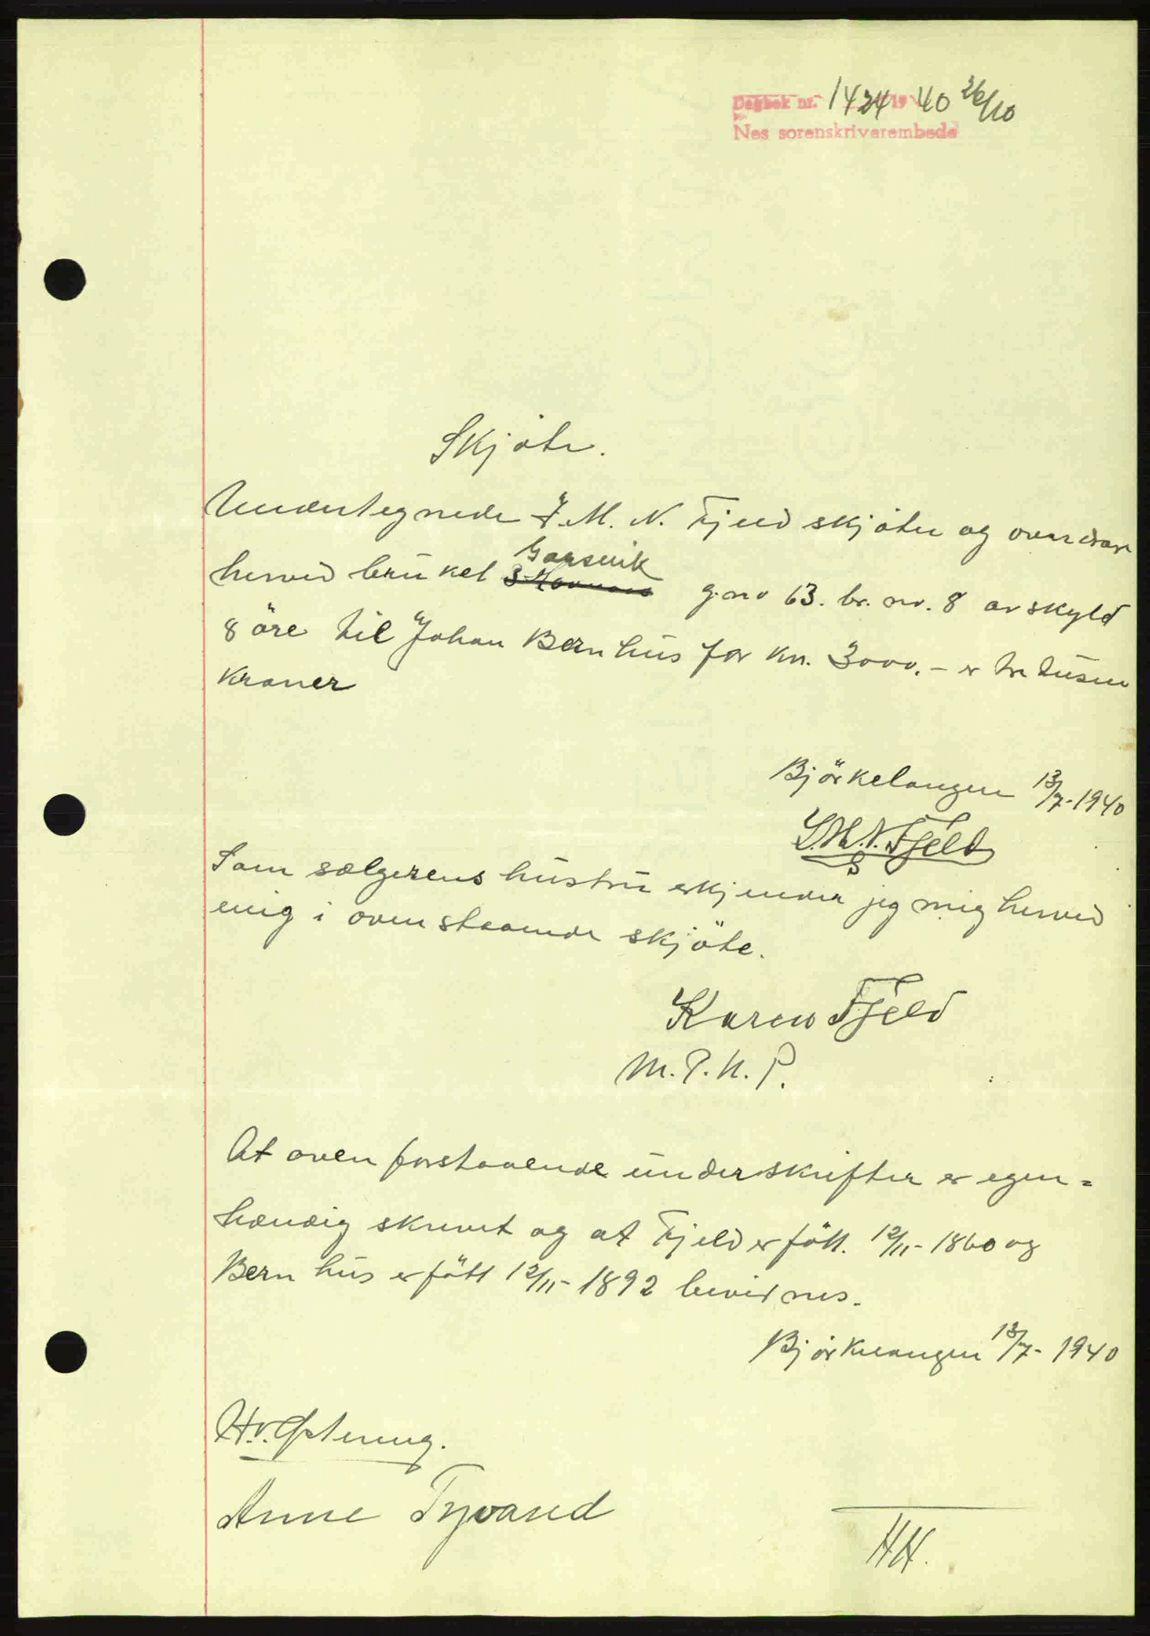 Dagbok nr. 1424 1940 26/10
Nes sorenskriverembede
Skjøte.
Undertegnede J. M. N. Fjeld skjøter og overdrar
Garsvik
herved bruket g.no 63. br. nr. 8 av skyld
8 öre til Johan Bernhus for kr. 3000.- er tre tusen
kroner
Björkelangen 13/7-1940
J.M.N. Fjeld
Som sælgerens hustru erkjender jeg mig herved
enig i ovenstaaende skjöte.
Karen Fjeld
M.P.N.P.
At oven forstaaende underskrifter er egen=
hændig skrevet og at Fjeld er fött. 12/11-1860 og
Bernhus er fött 12/11-1892 bevidnes.
Björkelangen 13/7-1940
Anne Tyvand
HH.